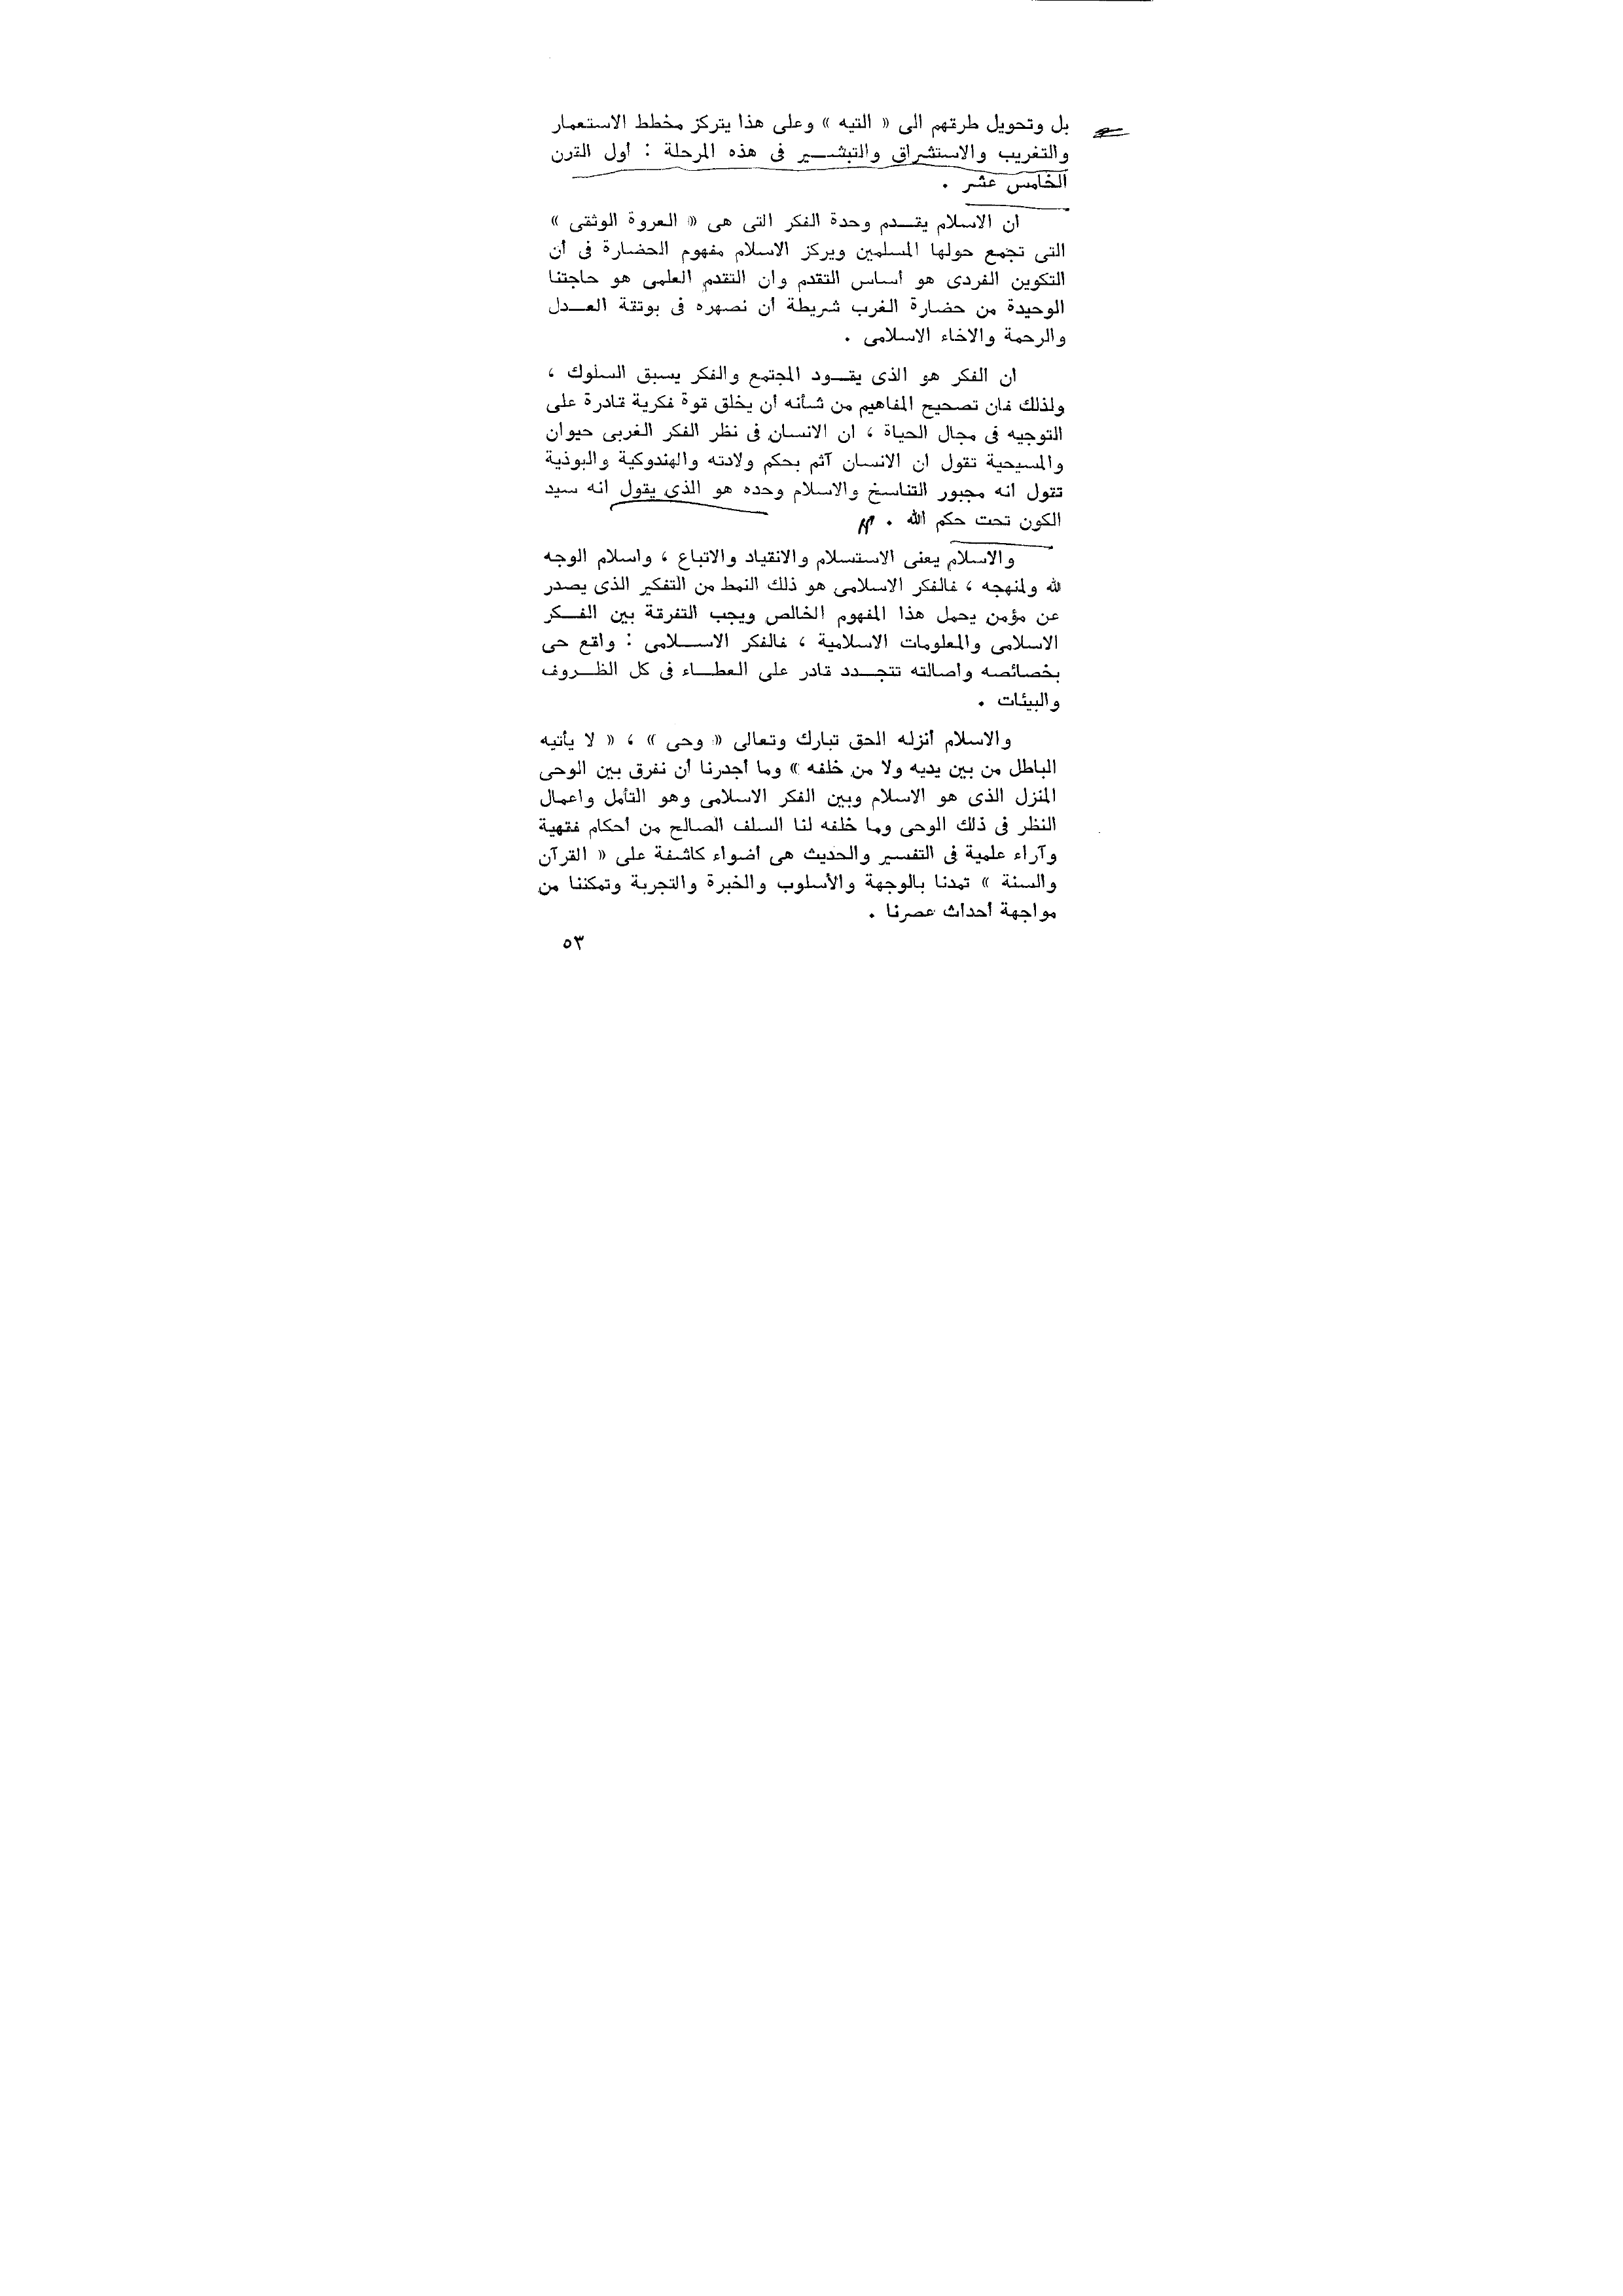 بل وتحويل طرقهم الى « التيه » وعلى هذا يتركز مخطط الاستعمار
والتغريب والاستشراق والتبشـــير فى هذه المرحلة : أول القرن
الخامس عشر .
ان الاسلام يقـــدم وحدة الفكر التى هى « العروة الوثقى »
التى تجمع حولها المسلمين ويركز الاسلام مفهوم الحضارة فى أن
التكوين الفردى هو أساس التقدم وان التقدم العلمى هو حاجتنا
الوحيدة من حضارة الغرب شريطة أن نصهره فى بوتقة العـــدل
والرحمة والاخاء الاسلامى .
ان الفكر هو الذى يقـــود المجتمع والفكر يسبق السلوك ،
ولذلك فان تصحيح المفاهيم من شأنه أن يخلق قوة فكرية قادرة على
التوجيه فى مجال الحياة ، ان الانسان فى نظر الفكر الغربى حيوان
والمسيحية تقول ان الانسان آثم بحكم ولادته والهندوكية والبوذية
تقول انه مجبور التناسخ والاسلام وحده هو الذى يقول انه سيد
الكون تحت حكم الله .
والاسلام يعنى الاستسلام والانقياد والاتباع ، واسلام الوجه
لله ولمنهجه ، فالفكر الاسلامى هو ذلك النمط من التفكير الذى يصدر
عن مؤمن يحمل هذا المفهوم الخالص ويجب التفرقة بين الفـــكر
الاسلامى والمعلومات الاسلامية ، فالفكر الاســـلامى : واقع حى
بخصائصه وأصالته تتجـــدد قادر على العطـــاء فى كل الظـــروف
والبيئات .
والاسلام أنزله الحق تبارك وتعالى « وحى » ، « لا يأتيه
الباطل من بين يديه ولا من خلفه » وما أجدرنا أن نفرق بين الوحى
المنزل الذى هو الاسلام وبين الفكر الاسلامى وهو التأمل واعمال
النظر فى ذلك الوحى وما خلفه لنا السلف الصالح من أحكام فقهية
وآراء علمية فى التفسير والحديث هى أضواء كاشفة على « القرآن
والسنة » تمدنا بالوجهة والأسلوب والخبرة والتجربة وتمكننا من
مواجهة أحداث عصرنا .
٥٣